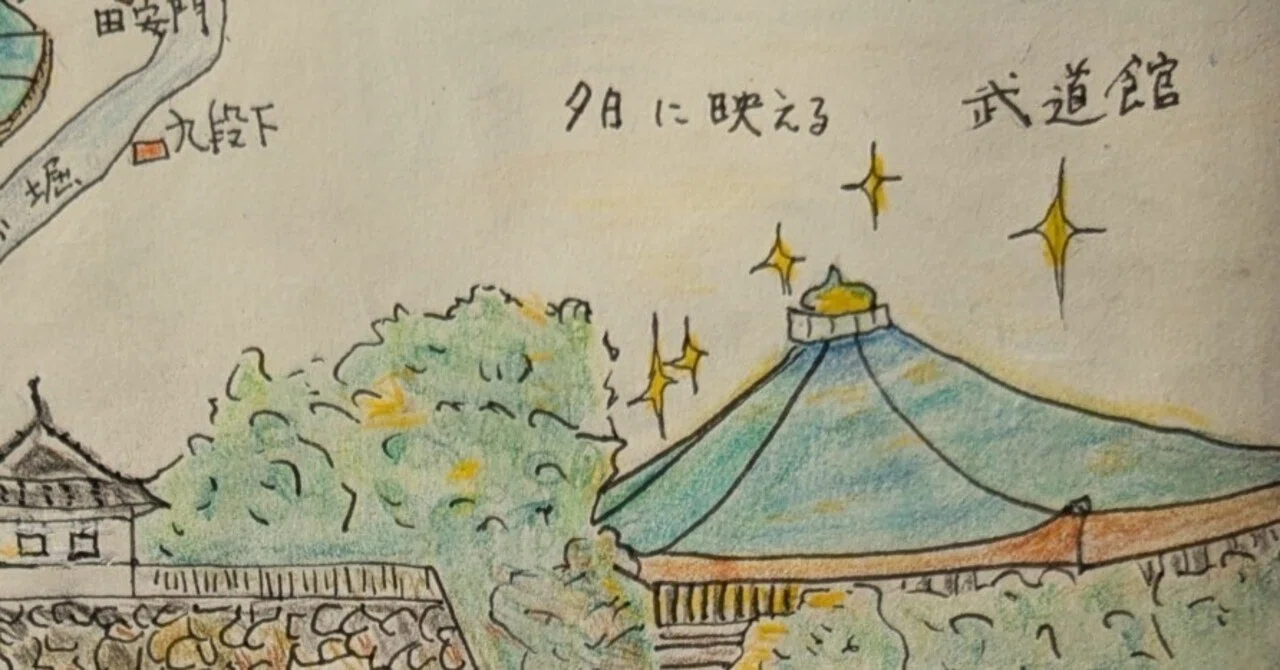 田安門
九段下
堀
夕月に映える 武道館